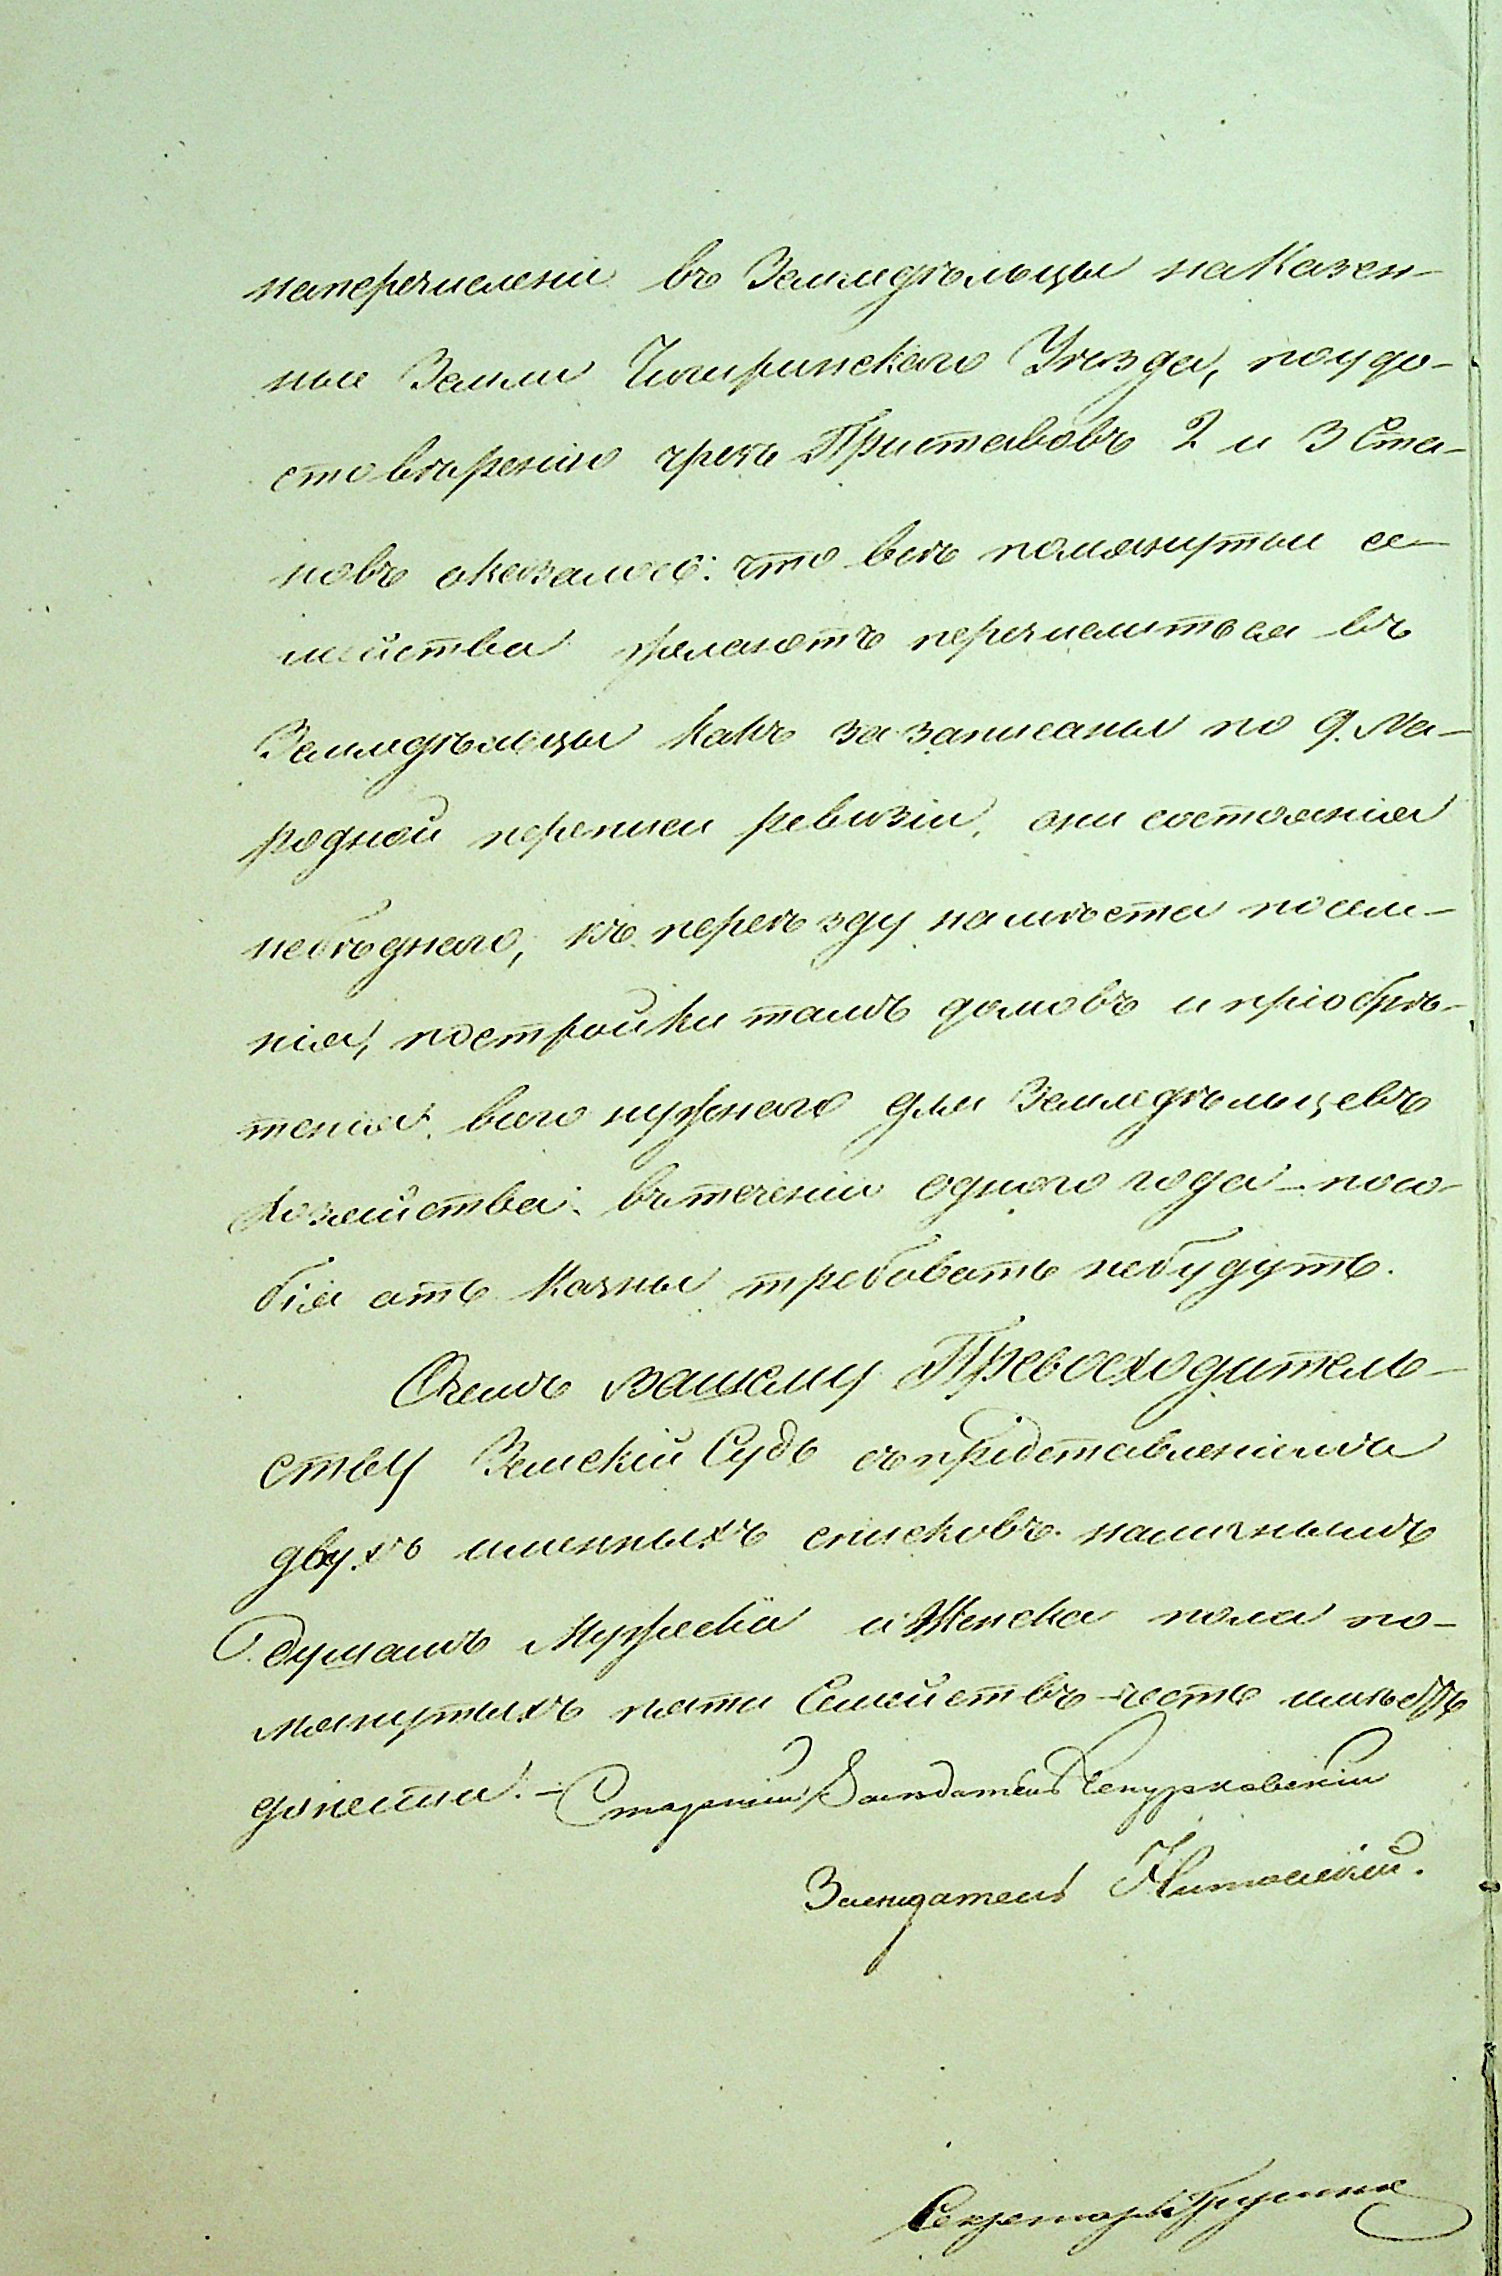 наперечисленіи въ Земледѣльцы наКазен-
ные Земли Чигиринскаго Уѣзда, поудо-
стовѣренію чрезъ Приставовъ 2 и 3 Ста-
новъ оказалось: что всѣ помянутыи се-
мейства желаютъ перечислиться въ
Земледѣльцы какъ за записаны по 9. На-
родной переписи ревизіи, они состоянія
небѣднаго, къ переѣзду наместа поселе-
нія, постройки тамъ домовъ и пріобрѣ-
тенія всего нужнаго для Земледѣльцевъ
Хозяйства: втеченіи одного года – посо-
бія отъ казны требовать небудутъ.
Очемъ вашему Превосходитель-
ству Земскій Судъ съпредставленіемъ
двухъ именныхъ списковъ наличнымъ
душамъ Мужеска иЖенска пола по-
мянутыхъ пяти Семействъ честь имѣетъ
донести. – Старшій Засѣдатель
Засѣдатель
Секретарь